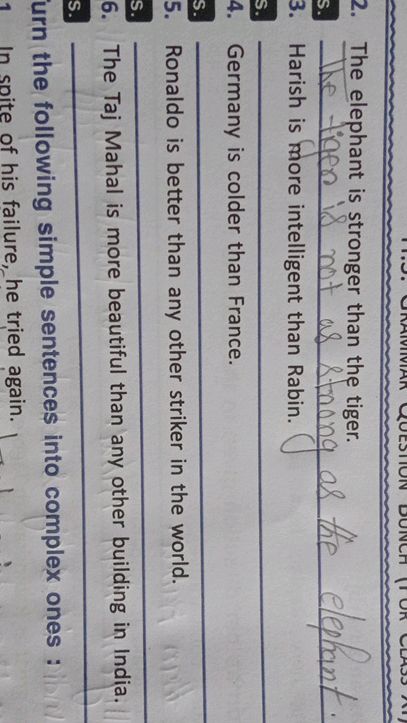 H.S. GRAMMAR QUESTION BUNCH (FOR CLASS XI
2. The elephant is stronger than the tiger.
S. The tiger is not as strong as the elephant.
3. Harish is more intelligent than Rabin.
S.
4. Germany is colder than France.
S.
5. Ronaldo is better than any other striker in the world.
S.
6. The Taj Mahal is more beautiful than any other building in India.
S.
urn the following simple sentences into complex ones :
1 In spite of his failure, he tried again.